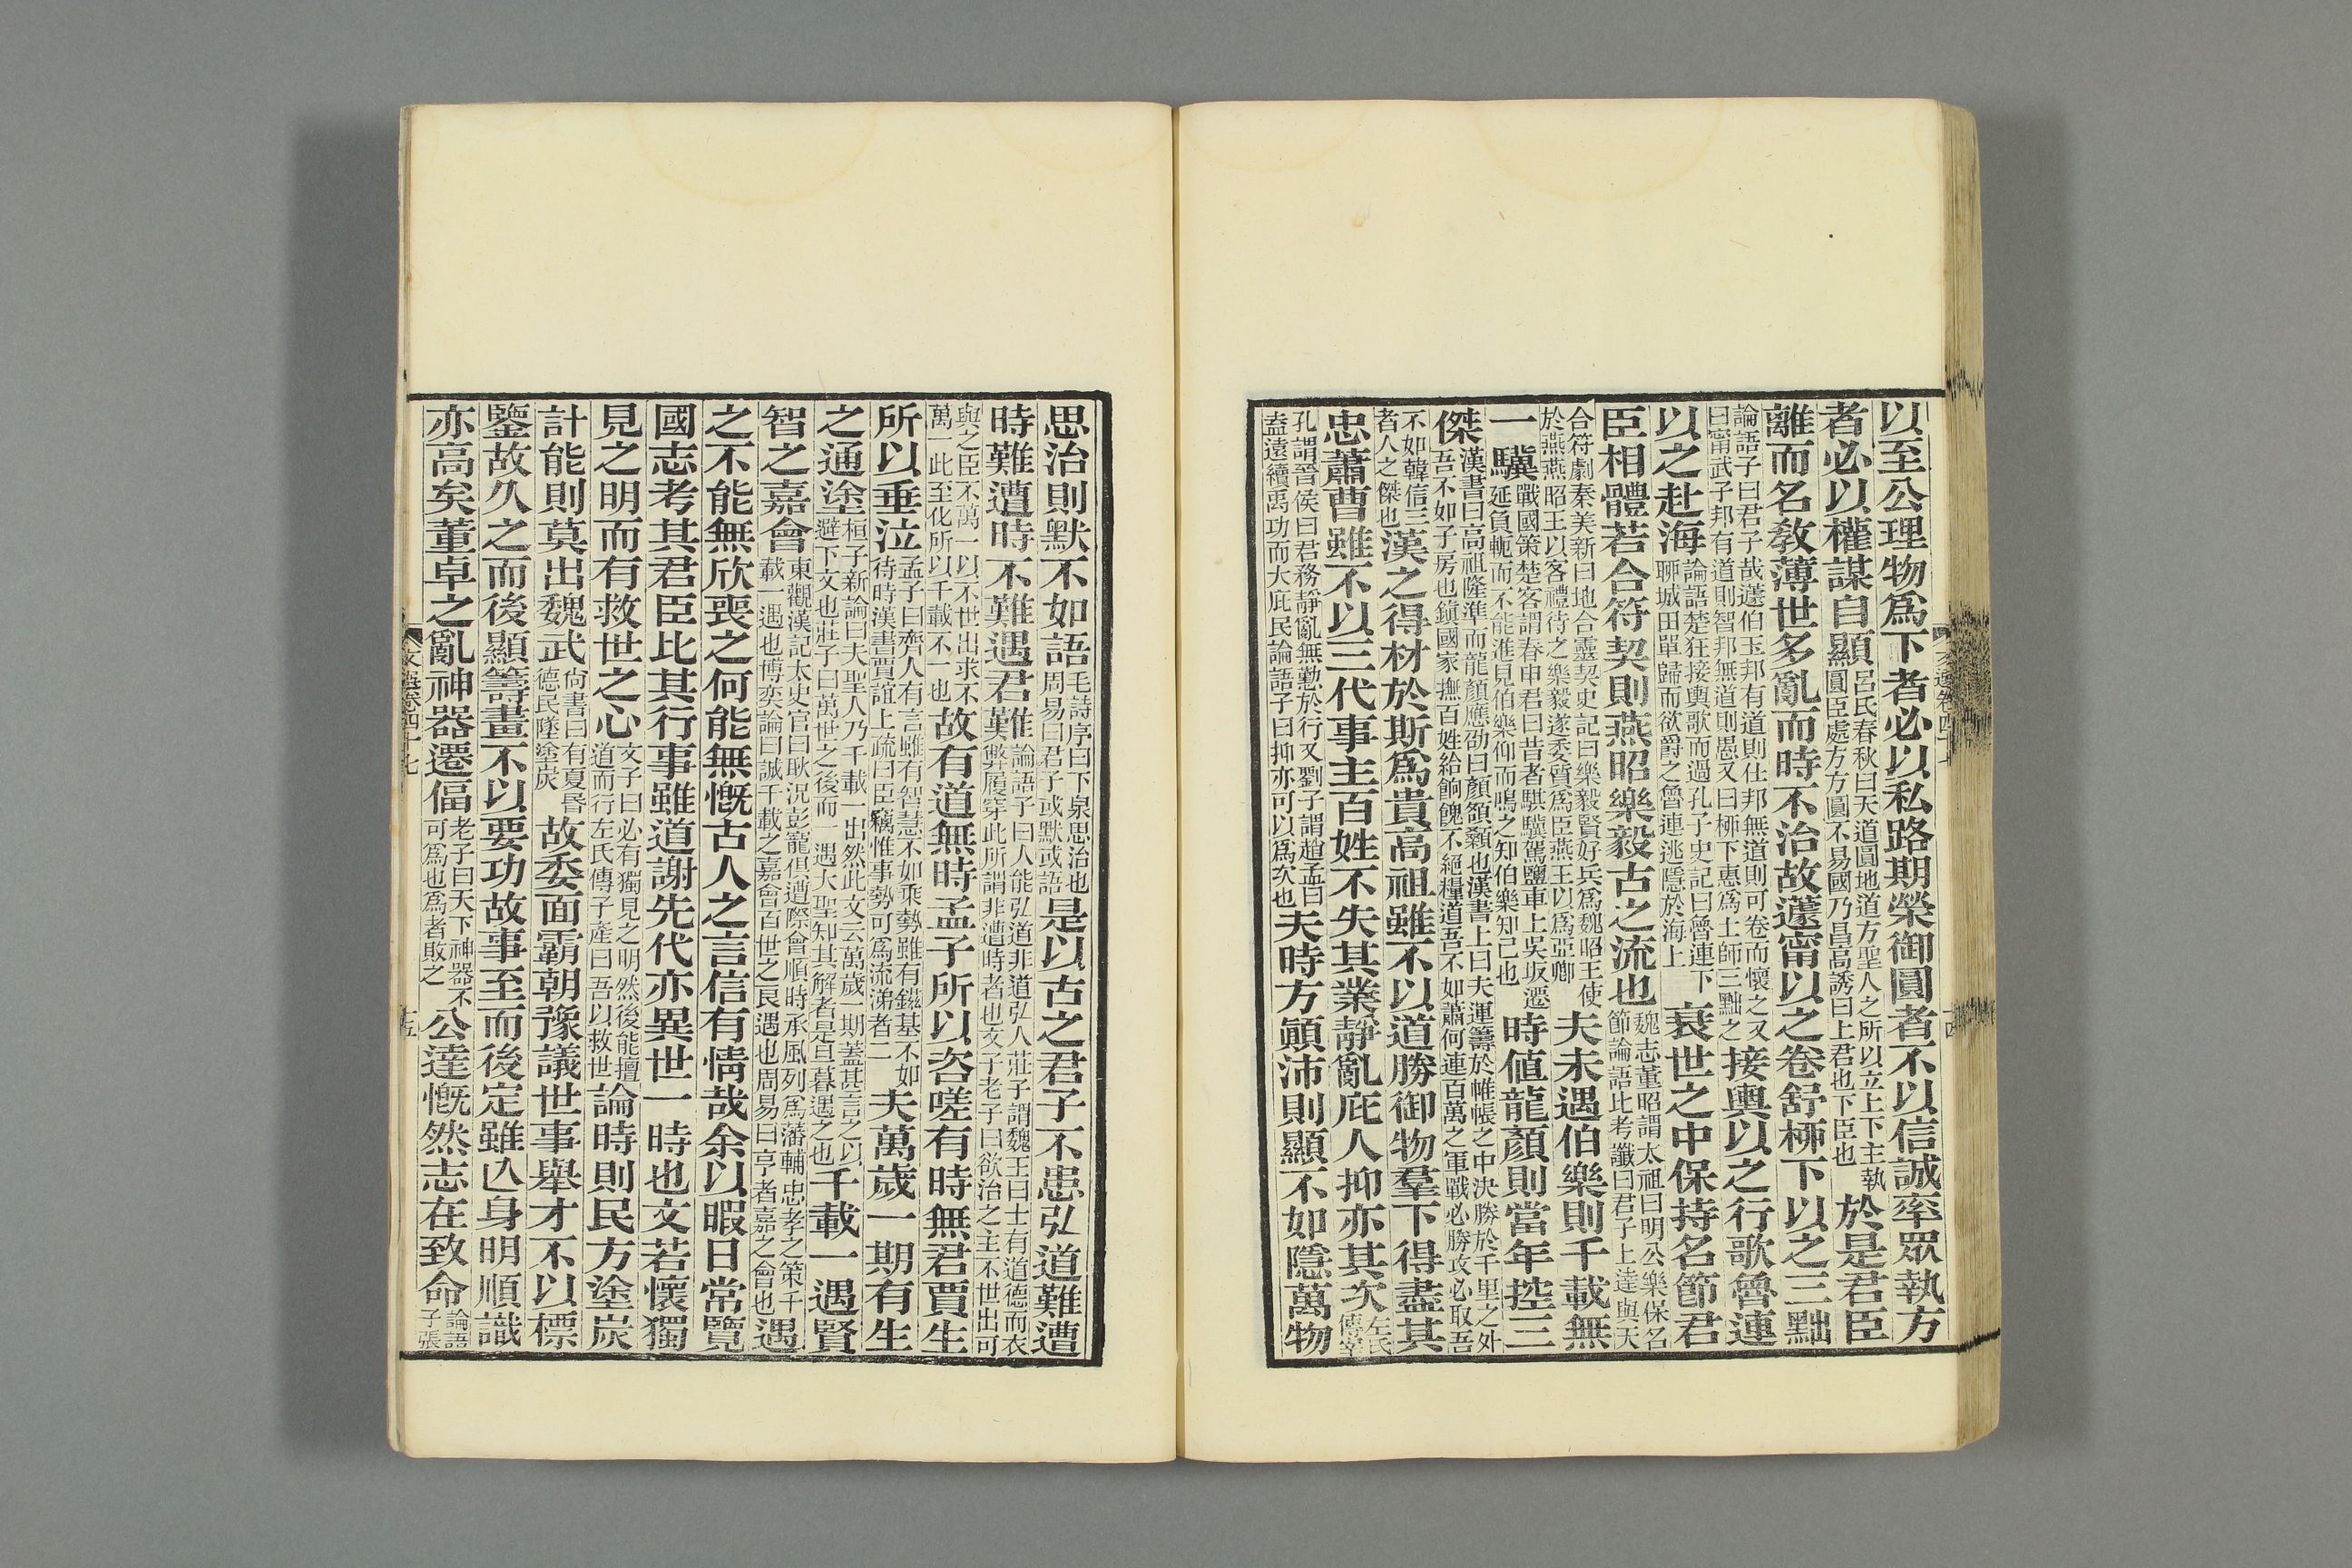 以至公理物爲下者必以私路期榮御圓者不以信誠率眾執方
者必以權謀自顯呂氏春秋曰天道圓地道方聖人之所以立上下主執圓臣處方方圓不易國乃昌高誘曰上君也下臣也於是君臣
離而名敎薄世多亂而時不治故蘧甯以之卷舒桺下以之三黜
論語子曰君子哉蘧伯玉邦有道則仕邦無道則可卷而懷之又曰甯武子邦有道則智邦無道則愚又曰桺下惠爲士師三黜之接輿以之行歌魯連
以之赴海論語楚狂接輿歌而過孔子史記曰魯連下聊城田單歸而欲爵之魯連逃隱於海上衰世之中保持名節君
臣相體若合符契則燕昭樂毅古之流也魏志董昭謂太祖曰明公樂保名節論語比考讖曰君子上達與天
合符劇秦美新曰地合靈契史記曰樂毅賢好兵爲魏昭王使於燕燕昭王以客禮待之樂毅遂委質爲臣燕王以爲亞卿夫未遇伯樂則千載無
一驥戰國策楚客謂春申君曰昔者騏驥駕鹽車上吳坂遷延負軛而不能進見伯樂仰而鳴之知伯樂知己也時值龍顏則當年控三
傑漢書曰高祖隆準而龍顏應劭曰顏頟顙也漢書上曰夫運籌於帷帳之中決勝於千里之外吾不如子房也鎮國家撫百姓給餉餽不絕糧道吾不如蕭何連百萬之軍戰必勝攻必取吾
不如韓信三者人之傑也漢之得材於斯爲貴高祖雖不以道勝御物羣下得盡其
忠蕭曹雖不以三代事主百姓不失其業靜亂庇人抑亦其次左氏傳宰
孔謂晉侯曰君務靜亂無勤於行又劉子謂趙孟曰盍遠續禹功而大庇民論語子曰抑亦可以爲次也夫時方顚沛則顯不如隱萬物
思治則默不如語毛詩序曰下泉思治也周易曰君子或默或語是以古之君子不患弘道難遭
時難遭時不難遇君難論語子曰人能弘道非道弘人莊子謂魏王曰士有道德而衣弊履穿此所謂非遭時者也文子老子曰欲治之主不世出可
與之臣不萬一以不世出求不萬一此至化所以千載不一也故有道無時孟子所以咨嗟有時無君賈生
所以垂泣孟子曰齊人有言雖有智慧不如乘勢雖有鎡基不如待時漢書賈誼上疏曰臣竊惟事勢可爲流涕者二夫萬歲一期有生
之通塗桓子新論曰夫聖人乃千載一出然此文云萬歲一期蓋甚言之以避下文也莊子曰萬世之後而一遇大聖知其解者是旦暮遇之也千載一遇賢
智之嘉會東觀漢記太史官曰耿況彭寵俱遭際會順時承風列爲藩輔忠孝之策千載一遇也博奕論曰誠千載之嘉會百世之良遇也周易曰亨者嘉之會也遇
之不能無欣喪之何能無慨古人之言信有情哉余以暇日常覽
國志考其君臣比其行事雖道謝先代亦異世一時也文若懷獨
見之明而有救世之心文子曰必有獨見之明然後能擅道而行左氏傳子產曰吾以救世論時則民方塗炭
計能則莫出魏武尙書曰有夏昏德民墜塗炭故委面霸朝豫議世事舉才不以標
鑒故久之而後顯籌畫不以要功故事至而後定雖亾身明順識
亦高矣董卓之亂神器遷偪老子曰天下神器不可爲也爲者敗之公達慨然志在致命論語子張
文選卷四十七
十五